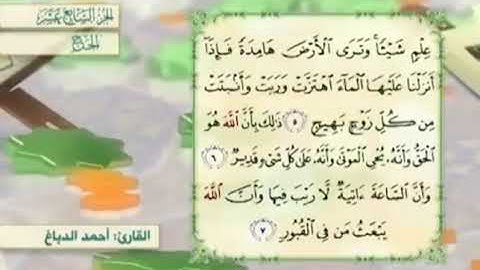 الجزء السابع عشر
الحج
عِلْمٍ شَيْئًا وَتَرَى الْأَرْضَ هَامِدَةً فَإِذَا
أَنزَلْنَا عَلَيْهَا الْمَاءَ اهْتَزَّتْ وَرَبَتْ وَأَنبَتَتْ
مِن كُلِّ زَوْجٍ بَهِيجٍ ٥ ذَٰلِكَ بِأَنَّ اللَّهَ هُوَ
الْحَقُّ وَأَنَّهُ يُحْيِي الْمَوْتَىٰ وَأَنَّهُ عَلَىٰ كُلِّ شَيْءٍ قَدِيرٌ ٦
وَأَنَّ السَّاعَةَ ءَاتِيَةٌ لَّا رَيْبَ فِيهَا وَأَنَّ اللَّهَ
يَبْعَثُ مَن فِي الْقُبُورِ ٧
القارئ: أحمد الدباغ